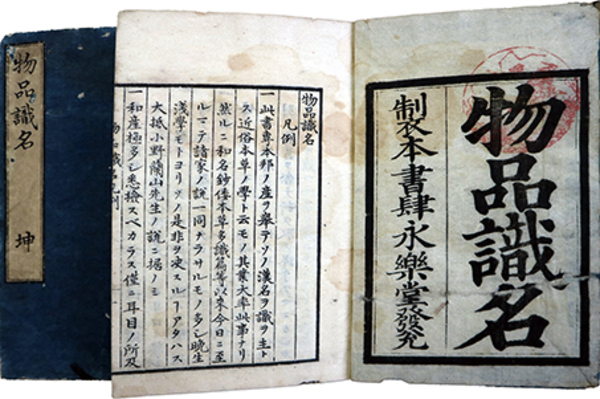 物品識名
製本書肆永樂堂發兌
物品識名
凡例
一此書專本邦ノ産ヲ擧テソノ漢名ヲ識ヲ主ト
ス近俗本草ノ學ト云モノ其業大率此事ナリ
然ルニ和名鈔倭本草多識篇等以來今日ニ至
ルマテ諸家ノ説一同ナラサルモノ多シ晩生
淺學モトヨリソノ是非ヲ決スルニアタハス
大抵小野蘭山先生ノ説ニ據ノミ
一和産極多シ悉檢スベカラス僅ニ耳目ノ所及
物品識名 坤